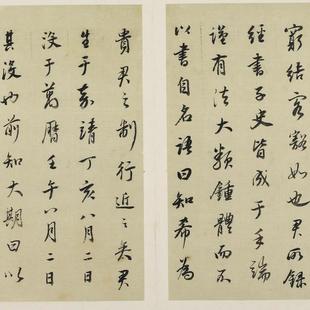 窮結客豁如也君所錄
經書子史皆成于手端
謹有法大類鍾體而不
以書自名語曰知希為
貴君之制行近之矣君
生于嘉靖丁亥八月二日
沒于萬曆壬午八月二日
其沒也前知大期曰以